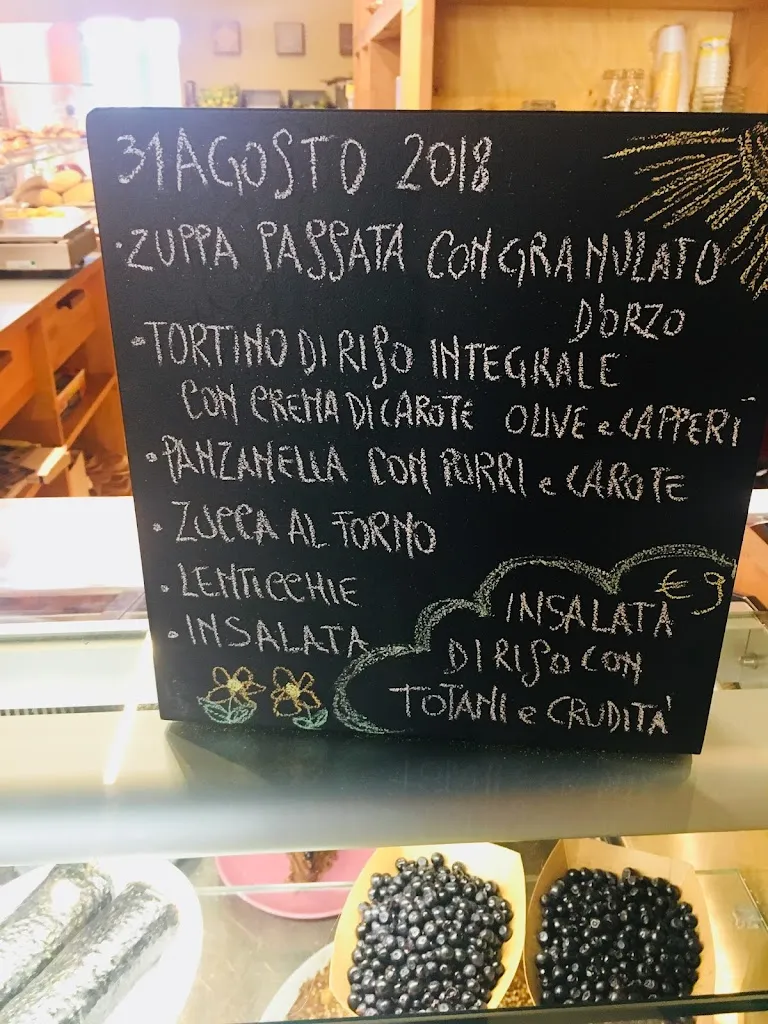 31 AGOSTO 2018
• ZUPPA PASSATA CON GRANULATO
D'ORZO
• TORTINO DI RISO INTEGRALE
CON CREMA DI CAROTE OLIVE e CAPPERI
• PANZANELLA CON PURRI e CAROTE
• ZUCCA AL FORNO
• LENTICCHIE
• INSALATA
€ 9
INSALATA
DI RISO CON
TOTANI e CRUDITA'